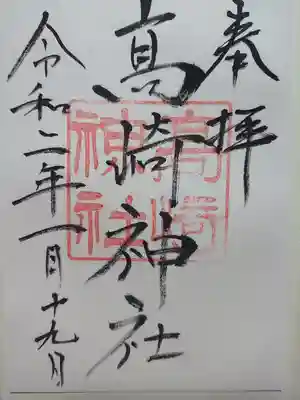 奉拝
高崎神社
高崎
神社
令和二年一月十九日